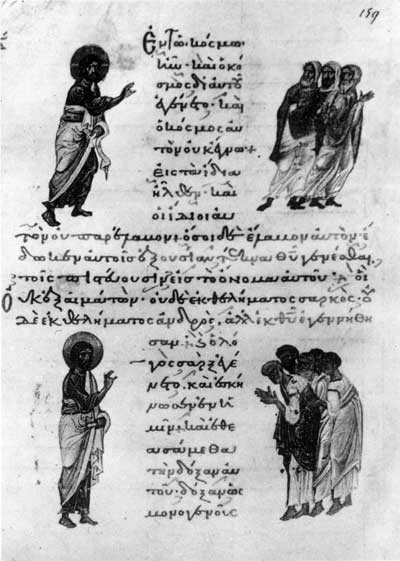 159
Ἐν τῷ κόσμῳ
ἦν· καὶ ὁ κό
σμος δι' αὐτοῦ
ἐγένετο· καὶ
ὁ κόσμος αὐ
τὸν οὐκ ἔγνω +
εἰς τὰ ἴδια
ἦλθεν· καὶ
οἱ ἴδιοι αὐ
τὸν οὐ παρέλαβον· ὅσοι δὲ ἔλαβον αὐτόν· ἔ
δωκεν αὐτοῖς ἐξουσίαν τέκνα θ̅υ̅ γενέσθαι
τοῖς πιστεύουσιν εἰς τὸ ὄνομα αὐτοῦ· οἳ
οὐκ ἐξ αἱμάτων· οὐδὲ ἐκ θελήματος σαρκός· οὐ
δὲ ἐκ θελήματος ἀνδρός, ἀλλ' ἐκ θ̅υ̅ ἐγεννήθη
σαν· καὶ ὁ λό
γος σὰρξ ἐγέ
νετο· καὶ ἐσκή
νωσεν ἐν ἡ
μῖν· καὶ ἐθε
ασάμεθα
τὴν δόξαν αὐ
τοῦ· δόξαν ὡς
μονογενοῦς